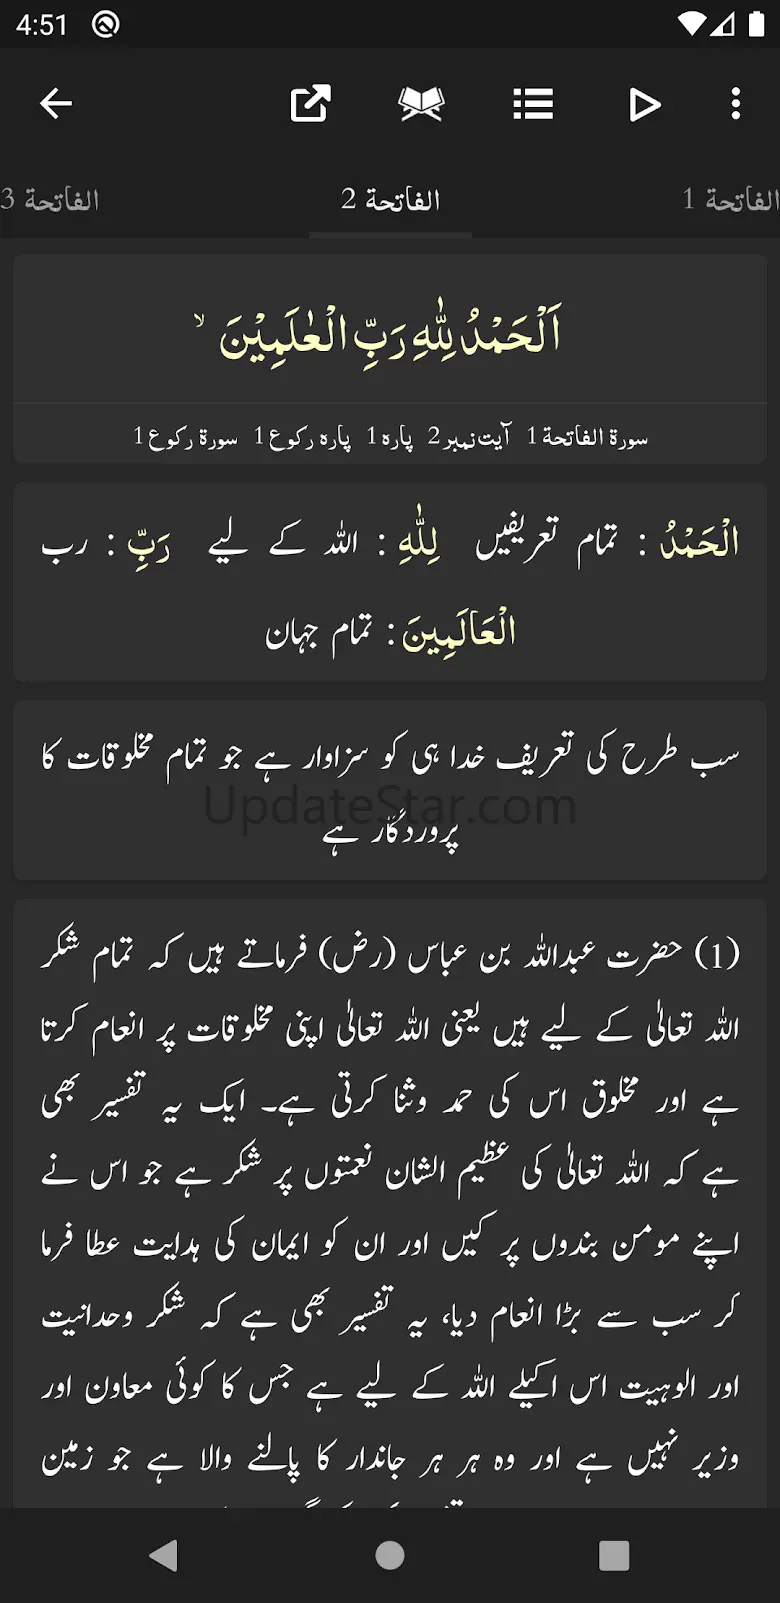 4:51
الفاتحة 1
الفاتحة 2
الفاتحة 3
اَلْحَمْدُ لِلّٰهِ رَبِّ الْعٰلَمِيْنَ ۙ
سورة الفاتحة 1 آیت نمبر 2 پارہ 1 پارہ رکوع 1 سورة رکوع 1
الْحَمْدُ : تمام تعریفیں لِلّٰهِ : اللہ کے لیے رَبِّ : رب
الْعَالَمِينَ : تمام جہان
سب طرح کی تعریف خدا ہی کو سزاوار ہے جو تمام مخلوقات کا
پروردگار ہے
UpdateStar.com
(1) حضرت عبداللہ بن عباس (رض) فرماتے ہیں کہ تمام شکر
اللہ تعالیٰ کے لیے ہیں یعنی اللہ تعالیٰ اپنی مخلوقات پر انعام کرتا
ہے اور مخلوق اس کی حمد وثنا کرتی ہے۔ ایک یہ تفسیر بھی
ہے کہ اللہ تعالیٰ کی عظیم الشان نعمتوں پر شکر ہے جو اس نے
اپنے مومن بندوں پر کیں اور ان کو ایمان کی ہدایت عطا فرما
کر سب سے بڑا انعام دیا، یہ تفسیر بھی ہے کہ شکر وحدانیت
اور الوہیت اس اکیلے اللہ کے لیے ہے جس کا کوئی معاون اور
وزیر نہیں ہے اور وہ ہر ہر جاندار کا پالنے والا ہے جو زمین